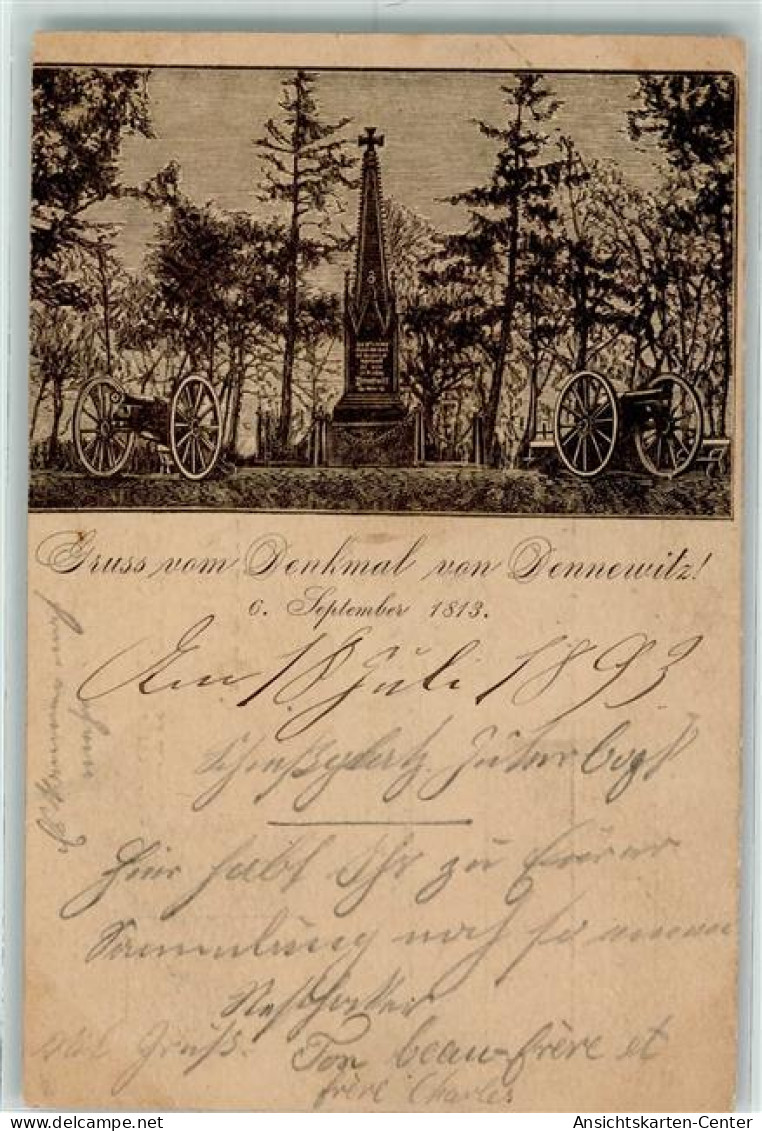 Gruss vom Denkmal von Dennewitz!
6. September 1813.
Am 18 Juli 1893
Schießplatz Jüterbogk
Hier habt Ihr zu Eurer
Sammlung noch so einen
Gruß. Ton beau-frère et
frère Charles
Ansichtskarten-Center